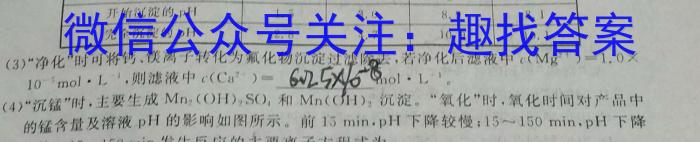 开始沉淀的pH
微信公众号关注：趣找答案
(3)“净化”时可将钙、镁离子转化为氟化物沉淀过滤除去，若净化后滤液中c(Mg²⁺)=1.0×
10⁻⁵mol·L⁻¹，则滤液中c(Ca²⁺)= 6.25×10⁻⁸ mol·L⁻¹。
(4)“沉锰”时，主要生成Mn₂(OH)₂SO₄和Mn(OH)₂沉淀。“氧化”时，氧化时间对产品中
的锰含量及溶液pH的影响如图所示。前15 min，pH下降较慢；15～150 min，pH下降
150 min发生反应的主要离子方程式为